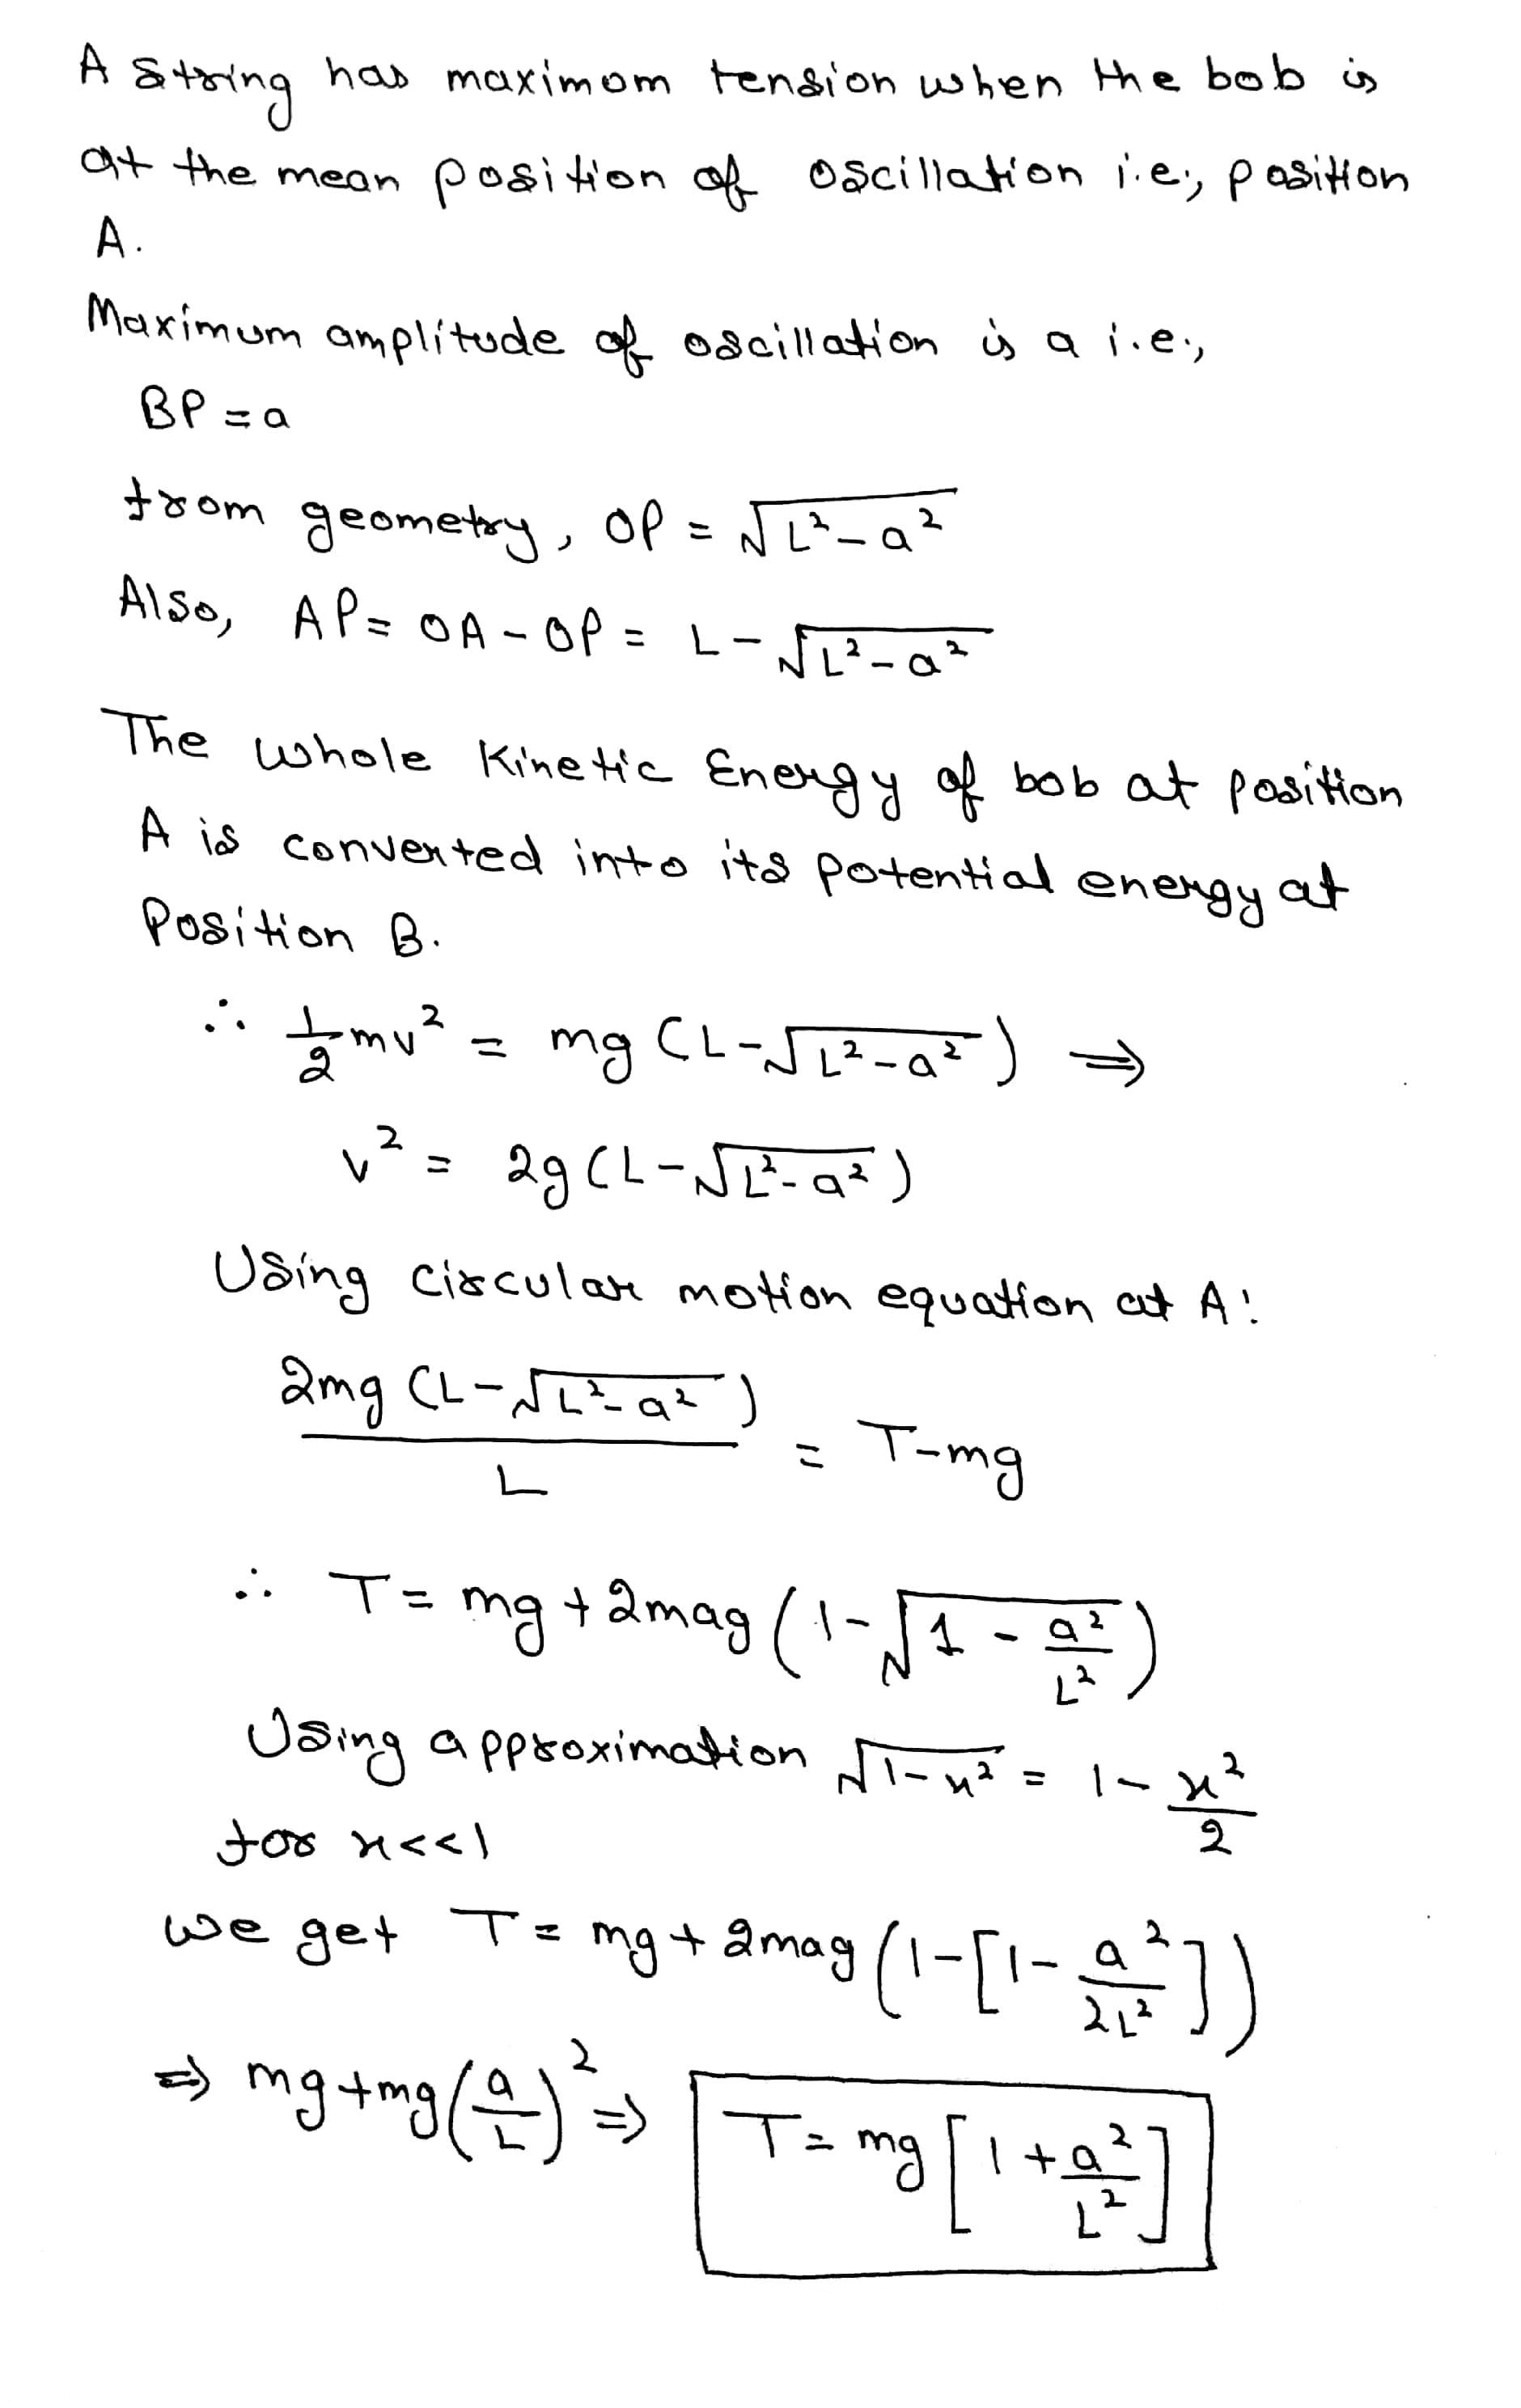 A string has maximom tension when the bob is
at the mean position of oscillation i.e., position
A.
Maximum amplitude of oscillation is a i.e.,
BP = a
from geometry, OP = √(L² - a²)
Also, AP = OA - OP = L - √(L² - a²)
The whole Kinetic Energy of bob at position
A is converted into its potential energy at
Position B.
∴ 1/2 mv² = mg (L - √(L² - a²)) ⇒
v² = 2g (L - √(L² - a²))
Using circular motion equation at A:
2mg (L - √(L² - a²)) / L = T - mg
∴ T = mg + 2mag (1 - √(1 - a²/L²))
Using approximation √(1 - x²) = 1 - x²/2
for x << 1
we get T = mg + 2mag (1 - [1 - a²/2L²])
⇒ mg + mg (a/L)² ⇒ T = mg [1 + a²/L²]